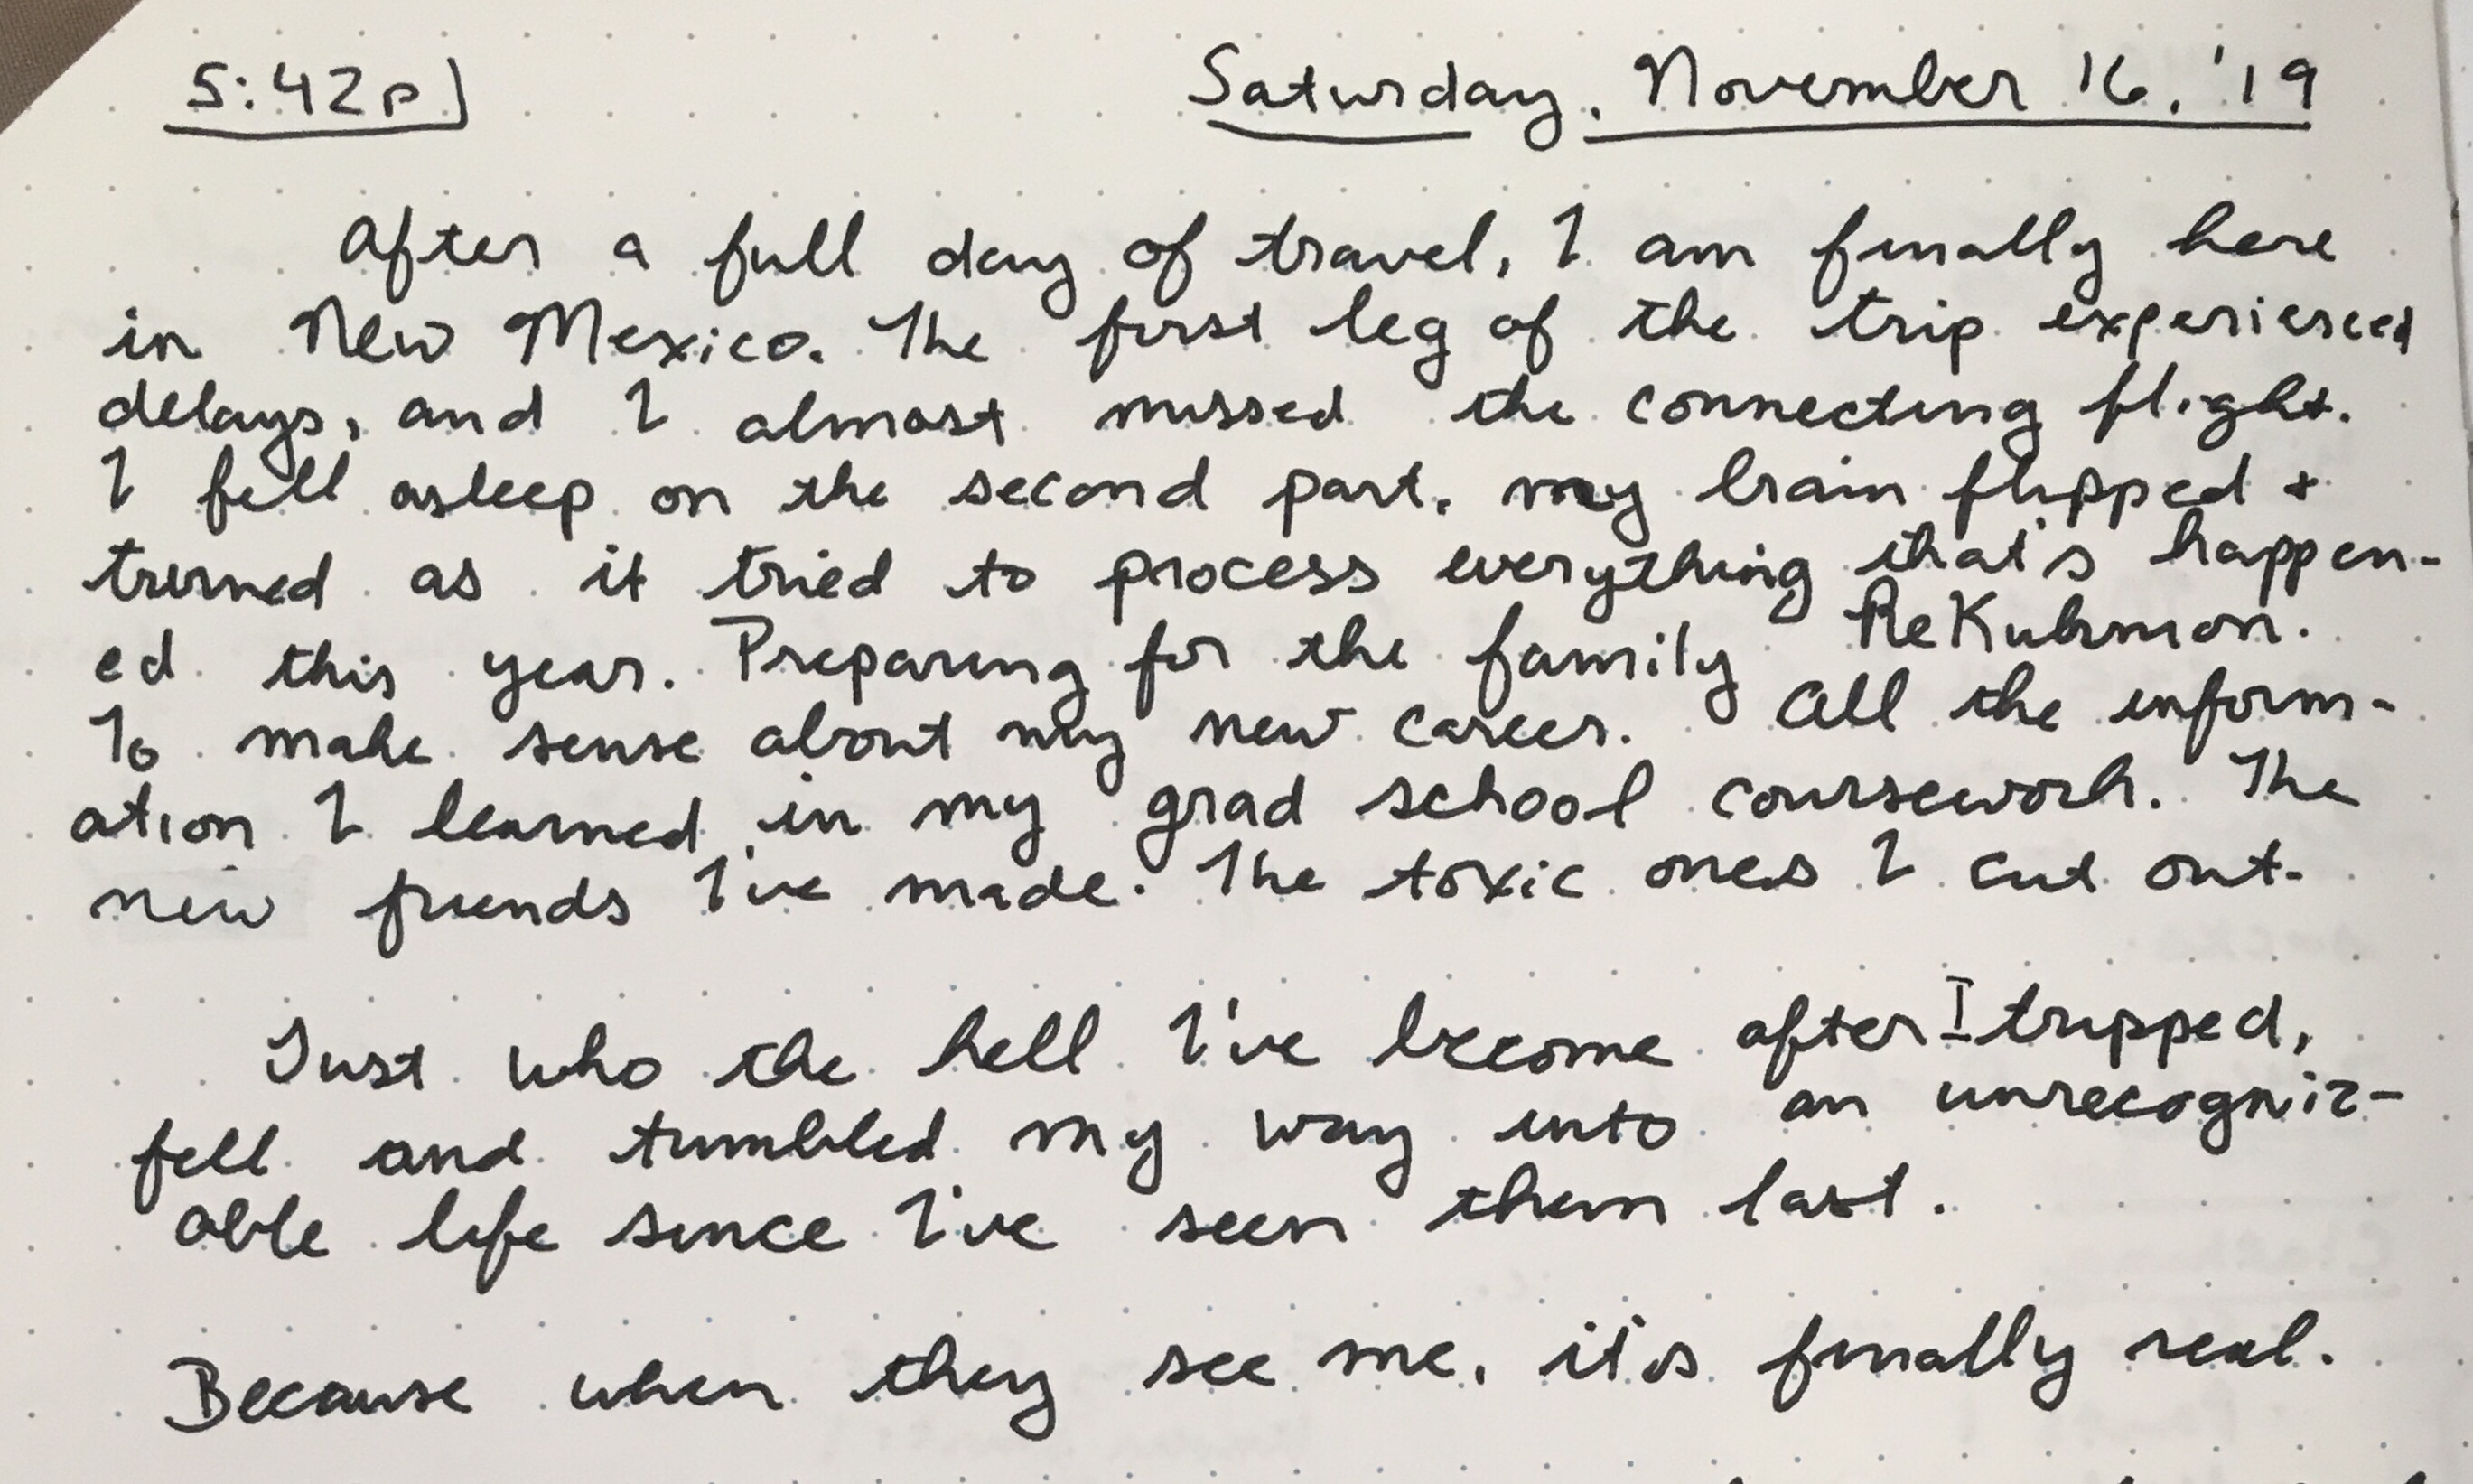 5:42p Saturday, November 16, '19
After a full day of travel, I am finally here
in New Mexico. The first leg of the trip experienced
delays, and I almost missed the connecting flight.
I fell asleep on the second part, my brain flipped +
turned as it tried to process everything that's happen-
ed this year. Preparing for the family
To make sense about my new career. All the inform-
ation I learned in my grad school coursework. The
new friends I've made. The toxic ones I cut out.
Just who the hell I've become after I tripped,
fell and tumbled my way into an unrecogniz-
able life since I've seen them last.
Because when they see me, it's finally real.